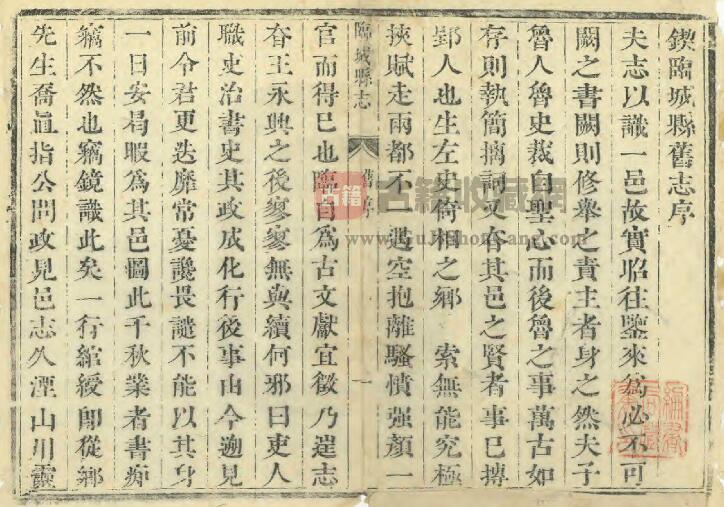 鍥臨城縣舊志序
夫志以識一邑故實昭往鑒來爲必不可
闕之書闕則修舉之責主者身之然夫子
魯人魯史裁自聖心而後魯之事萬古如
存則執簡摛詞又存其邑之賢者事已摶
郢人也生左史倚相之鄉 索無能究極
挾賦走兩都不遇空抱離騷憤强顏一
臨城縣志 舊序 一
官而得巳也臨自爲古文獻宜徵乃邑志
王永興之後寥寥無與續何邪曰吏人
職史治書史其政成化行後事由今遡見
前令君更迭靡常憂讒畏譴不能以其身
一日安曷暇爲其邑圖此千秋業者書痴
竊不然也竊鏡識此矣一行綰綬卽從鄉
先生喬眞指公問政見邑志久湮山川靈
古籍
古籍收藏網